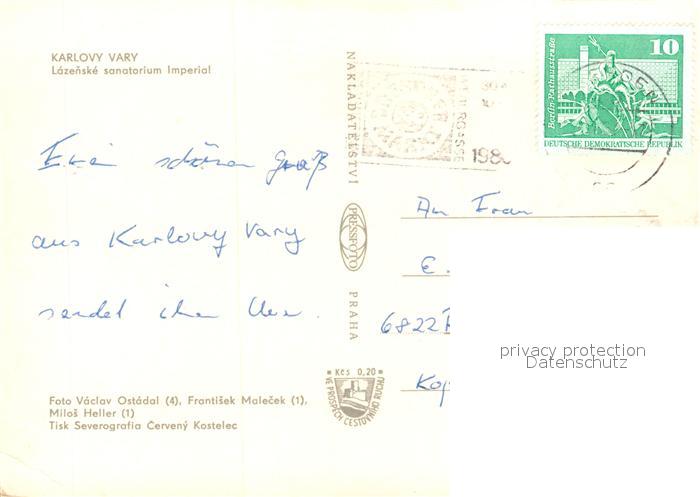 KARLOVY VARY
Lázeňské sanatorium Imperial
Ein schöner Gruß
aus Karlovy Vary
sendet
NAKLADATELSTVÍ
PRESSFOTO
PRAHA
Kčs 0,20
VE PROSPĚCH CESTOVNÍHO RUCHU
Foto Václav Ostádal (4), František Maleček (1),
Miloš Heller (1)
Tisk Severografia Červený Kostelec
10
Berlin-Rathausstraße
DEUTSCHE DEMOKRATISCHE REPUBLIK
198
An Frau
E.
6822
Kop
privacy protection
Datenschutz